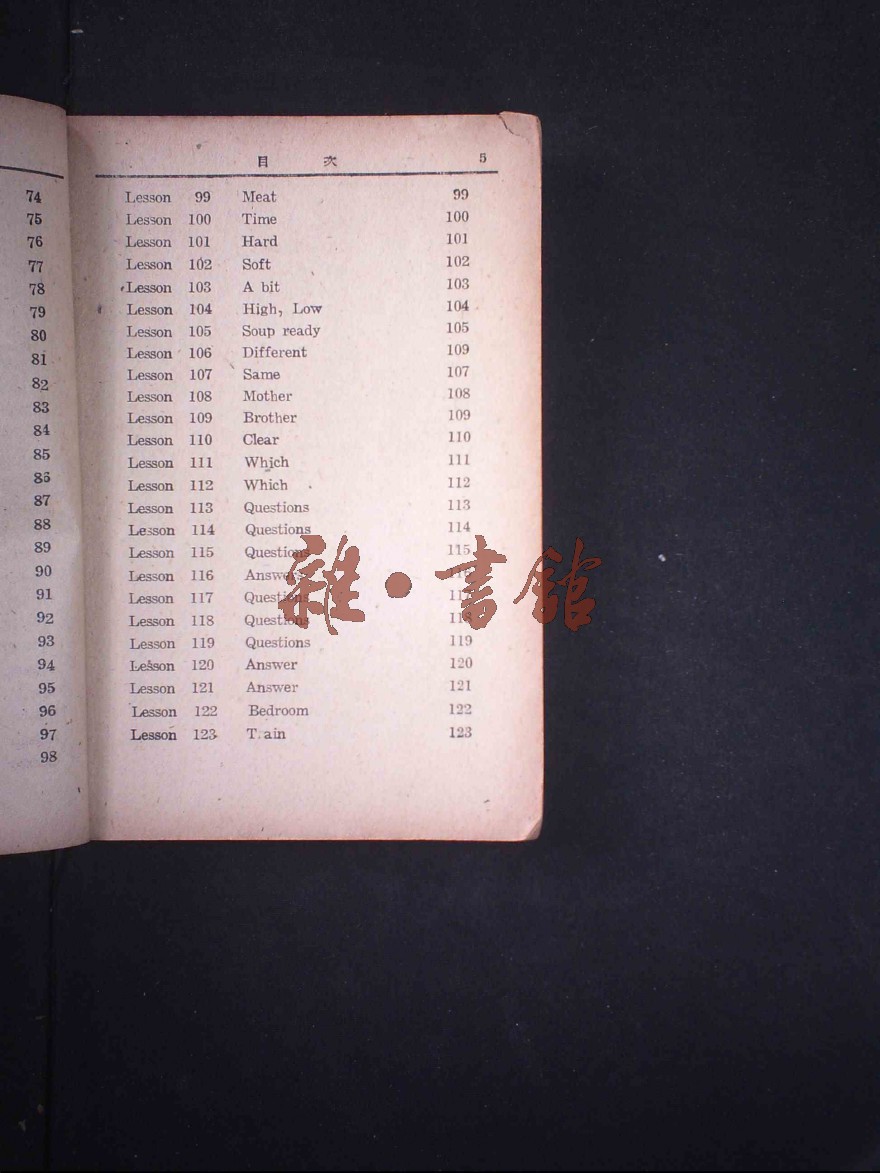 74
75
76
77
78
79
80
81
82
83
84
85
86
87
88
89
90
91
92
93
94
95
96
97
98
目 次 5
Lesson 99 Meat 99
Lesson 100 Time 100
Lesson 101 Hard 101
Lesson 102 Soft 102
Lesson 103 A bit 103
Lesson 104 High, Low 104
Lesson 105 Soup ready 105
Lesson 106 Different 109
Lesson 107 Same 107
Lesson 108 Mother 108
Lesson 109 Brother 109
Lesson 110 Clear 110
Lesson 111 Which 111
Lesson 112 Which 112
Lesson 113 Questions 113
Lesson 114 Questions 114
Lesson 115 Questions 115
Lesson 116 Answer 116
Lesson 117 Questions
Lesson 118 Questions 118
Lesson 119 Questions 119
Lesson 120 Answer 120
Lesson 121 Answer 121
Lesson 122 Bedroom 122
Lesson 123 T ain 123
雜·書館